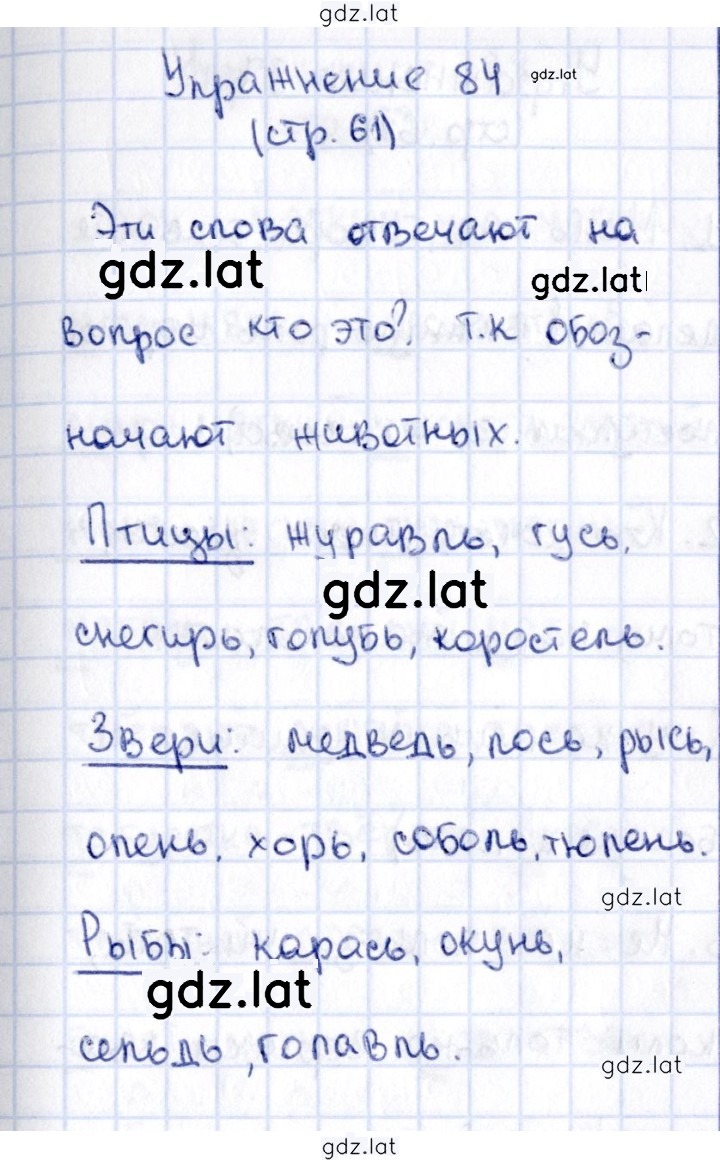 gdz.lat
Упражнение 84 gdz.lat
(стр. 61)
Эти слова отвечают на
gdz.lat gdz.lat
вопрос кто это? т.к обоз-
начают животных.
Птицы: журавль, гусь,
gdz.lat
снегирь, голубь, коростель.
Звери: медведь, лось, рысь,
олень, хорь, соболь, тюлень.
gdz.lat
Рыбы: карась, окунь,
gdz.lat
сельдь, голавль.
gdz.lat
gdz.lat